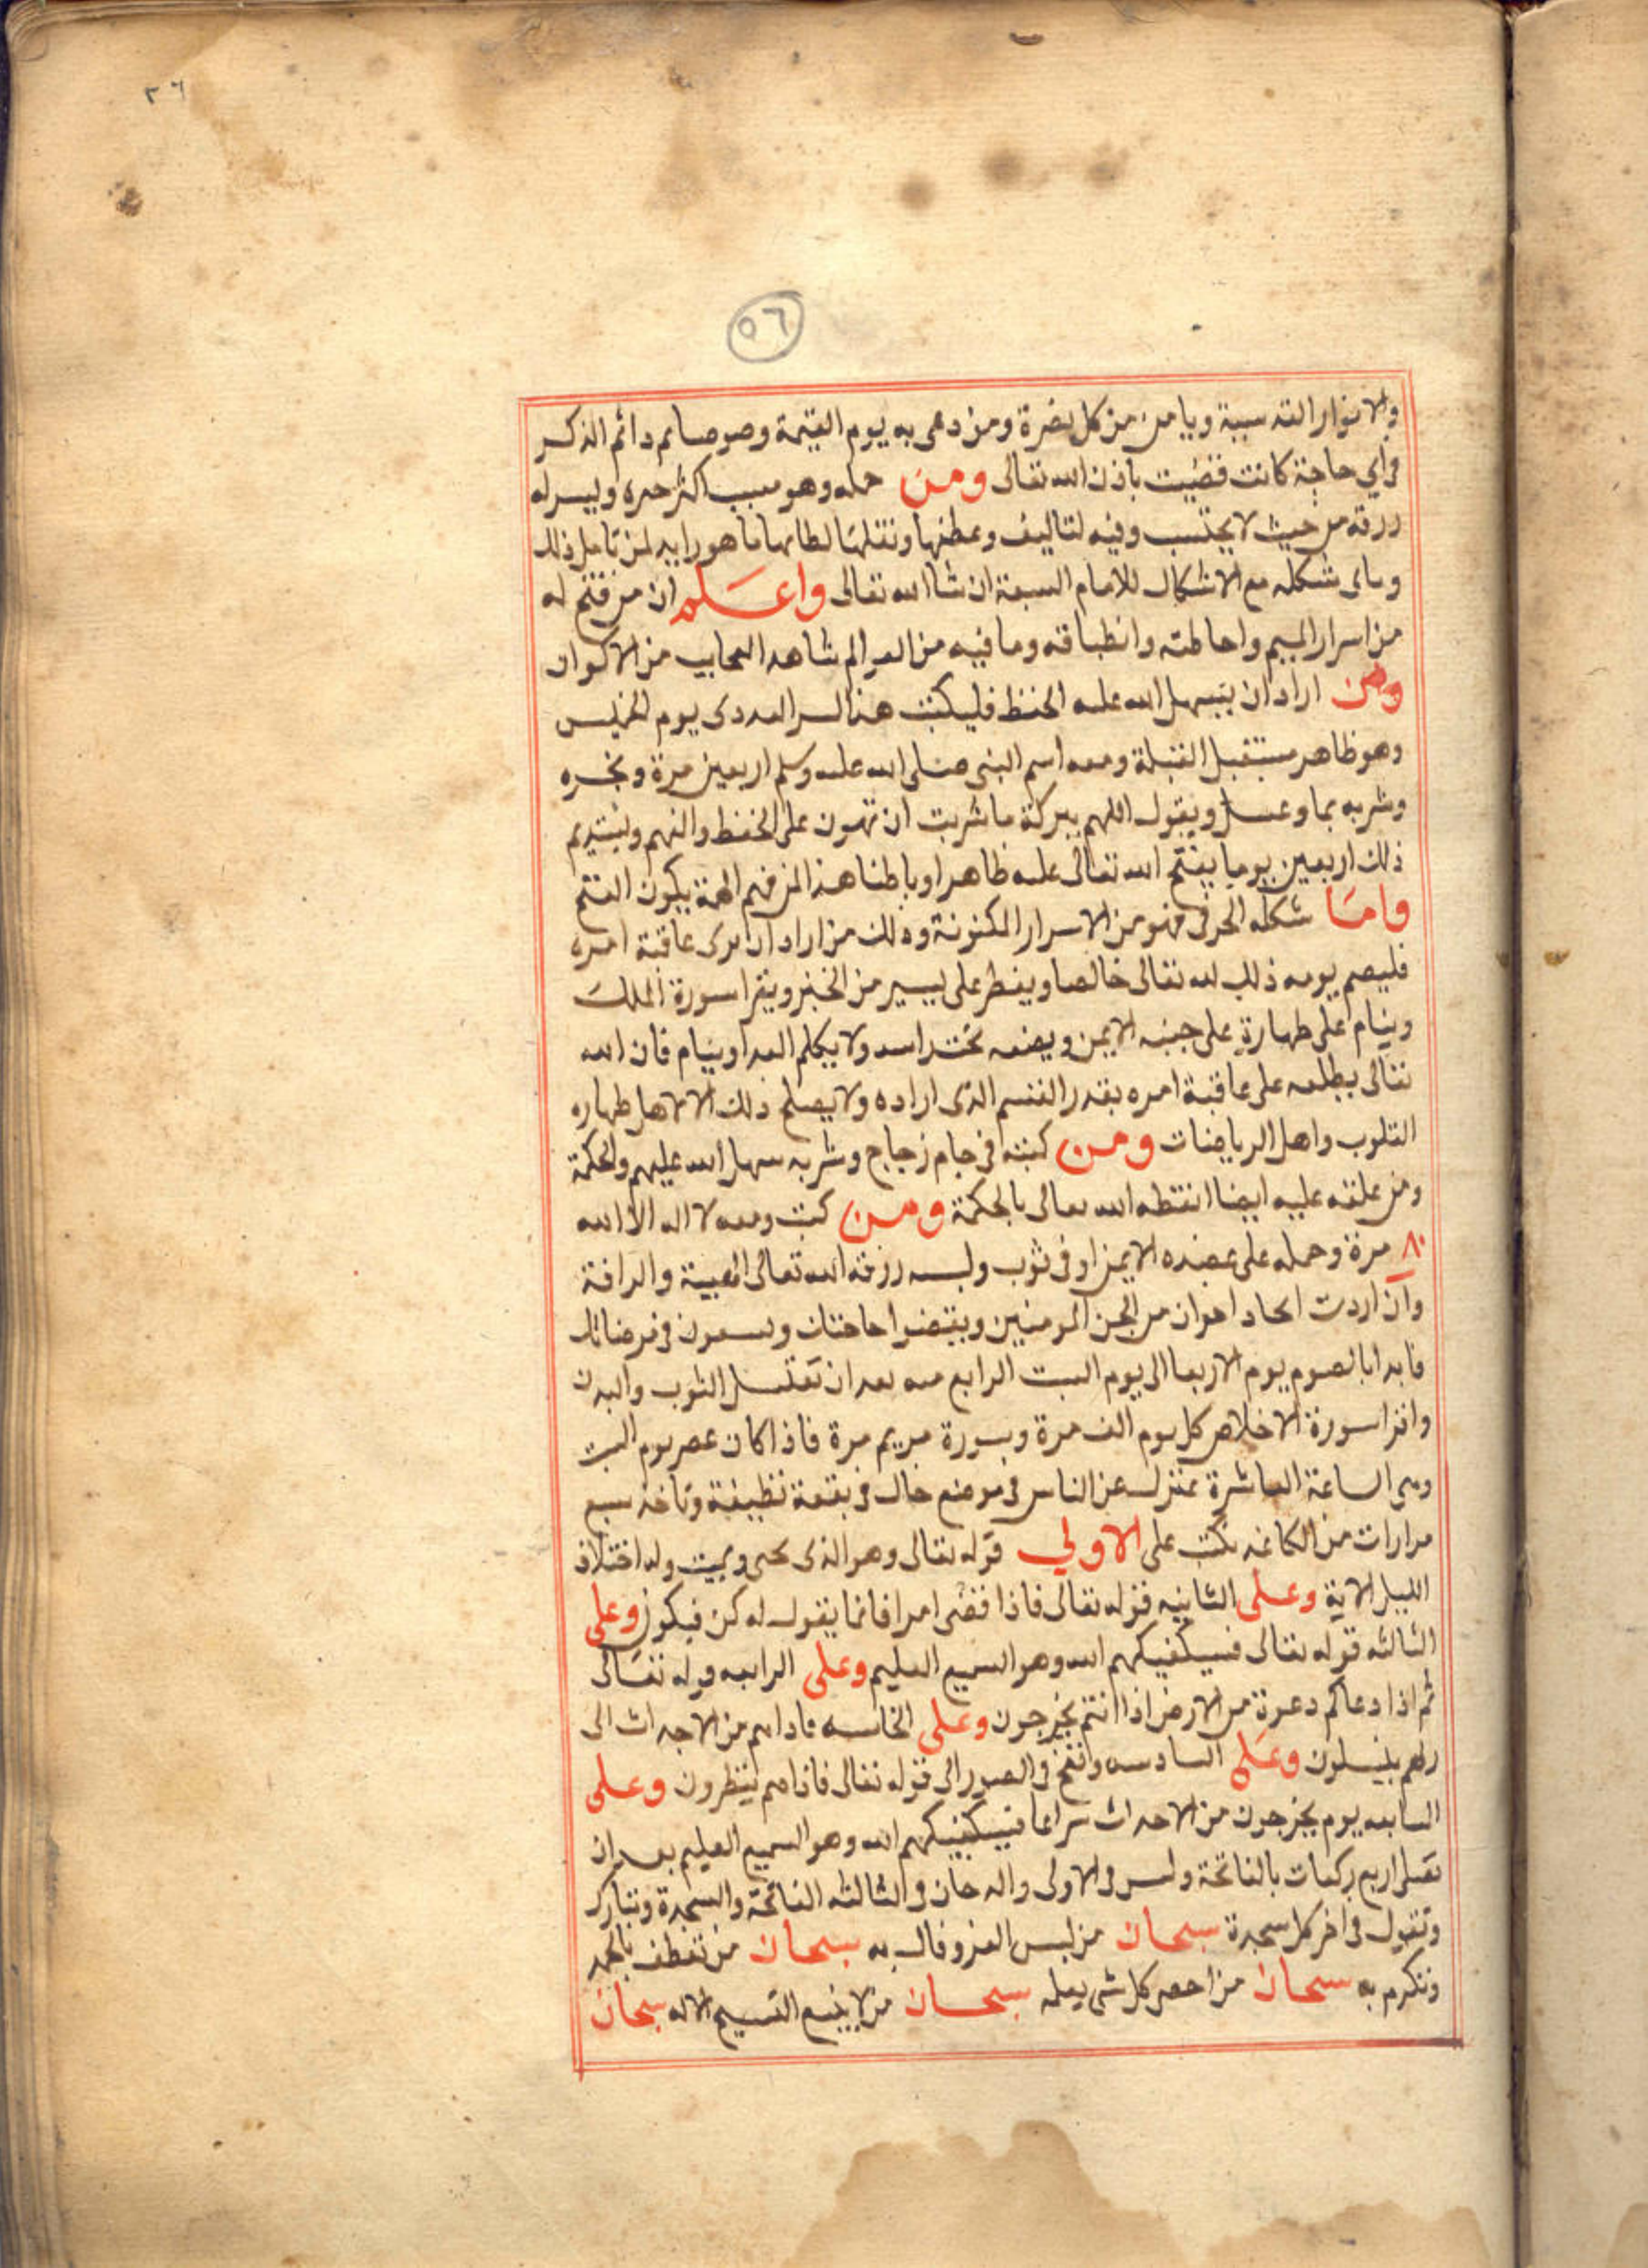 ٢٦
٥٦
والانوار القدسية ويامن من كل مضرة ومن دعى به يوم القيمة وهو صايم دائم الذكر
في اي حاجة كانت قضيت باذن الله تعالى ومن حمله وهو مسبب اكثر خيره وييسر له
رزقه من حيث لا يحتسب وفيه لتاليف وعطفها ونقلها ما هو رايد لمن تامل ذلك
وياتى شكله مع الاشكال للامام السبعة ان شا الله تعالى واعلم ان من فتح له
من اسرار الميم واحاطته وانطباقه وما فيه من العوالم شاهد العجايب من الاكوان
ومن اراد ان يسهل الله عليه الحفظ فليكتب هذا السر العددى يوم الخميس
وهو ظاهر مستقبل القبلة ومعه اسم النبى صلى الله عليه وسلم اربعين مرة وبخره
وشربه بما وعسل ويقول اللهم ببركة ما شربت ان تهون على الحفظ والفهم ويستديم
ذلك اربعين يوما يفتح الله تعالى عليه ظاهرا وباطنا هذا لمن فهم الهمة يكون الفتح
واما شكله الحرفى فهو من الاسرار المكنونة وذلك من اراد ان يرى عاقبة امره
فليصم يومه ذلك لله تعالى خالصا ويفطر على يسير من الخبز ويقرا سورة الملك
وينام على طهارة على جنبه الايمن ويضعه تحت راسه ولا يكلم احدا وينام فان الله
تعالى يطلعه على عاقبة امره بقدر القسم الذى اراده ولا يصلح ذلك الا لاهل طهاره
القلوب واهل الرياضات ومن كتبه فى جام زجاج وشربه سهل الله عليهم والحكمة
ومن علقه عليه ايضا انطقه الله تعالى بالحكمة ومن كتب ومعه لا اله الا الله
٨٠ مرة وحمله على عضده الايمن او فى ثوب ولبسه رزقه الله تعالى الهيبة والرافة
وان اردت اتحاد اخوان من الجن المومنين ويقضوا حاجتك ويسعون فى مرضاتك
فابدا بالصوم يوم الاربعا الى يوم السبت الرابع منه بعد ان تغتسل الثوب والبدن
واقرا سورة الاخلاص كل يوم الف مرة وسورة مريم مرة فاذا كان عصر يوم السبت
وهى الساعة العاشرة تعتزل عن الناس فى موضع خال فى بقعة نظيفة وتاخذ سبع
مرارات من الكاغد تكتب على الاولي قوله تعالى وهو الذى يحى ويميت وله اختلاف
الليل الاية وعلى الثانيه قوله تعالى فاذا قضى امرا فانما يقول له كن فيكون وعلى
الثالثه قوله تعالى فسيكفيكهم الله وهو السميع العليم وعلى الرابعه قوله تعالى
ثم اذا دعاكم دعوة من الارض اذا انتم تخرجون وعلى الخامسه فاذا هم من الاجداث الى
ربهم ينسلون وعلى السادسه ونفخ فى الصور الى قوله تعالى فاذا هم ينظرون وعلى
السابعه يوم يخرجون من الاجداث سراعا فسيكفيكهم الله وهو السميع العليم بعد ان
تصلى اربع ركعات بالفاتحة ويس فى الاولى والدخان فى الثالثه الفاتحة والسجدة وتبارك
وتقول فى اخر كل سجدة سبحان من لبس العز وقال به سبحان من تعطف بالمجد
وتكرم به سبحان من احصى كل شى بعلمه سبحان من لا ينبغى التسبيح الا له سبحان